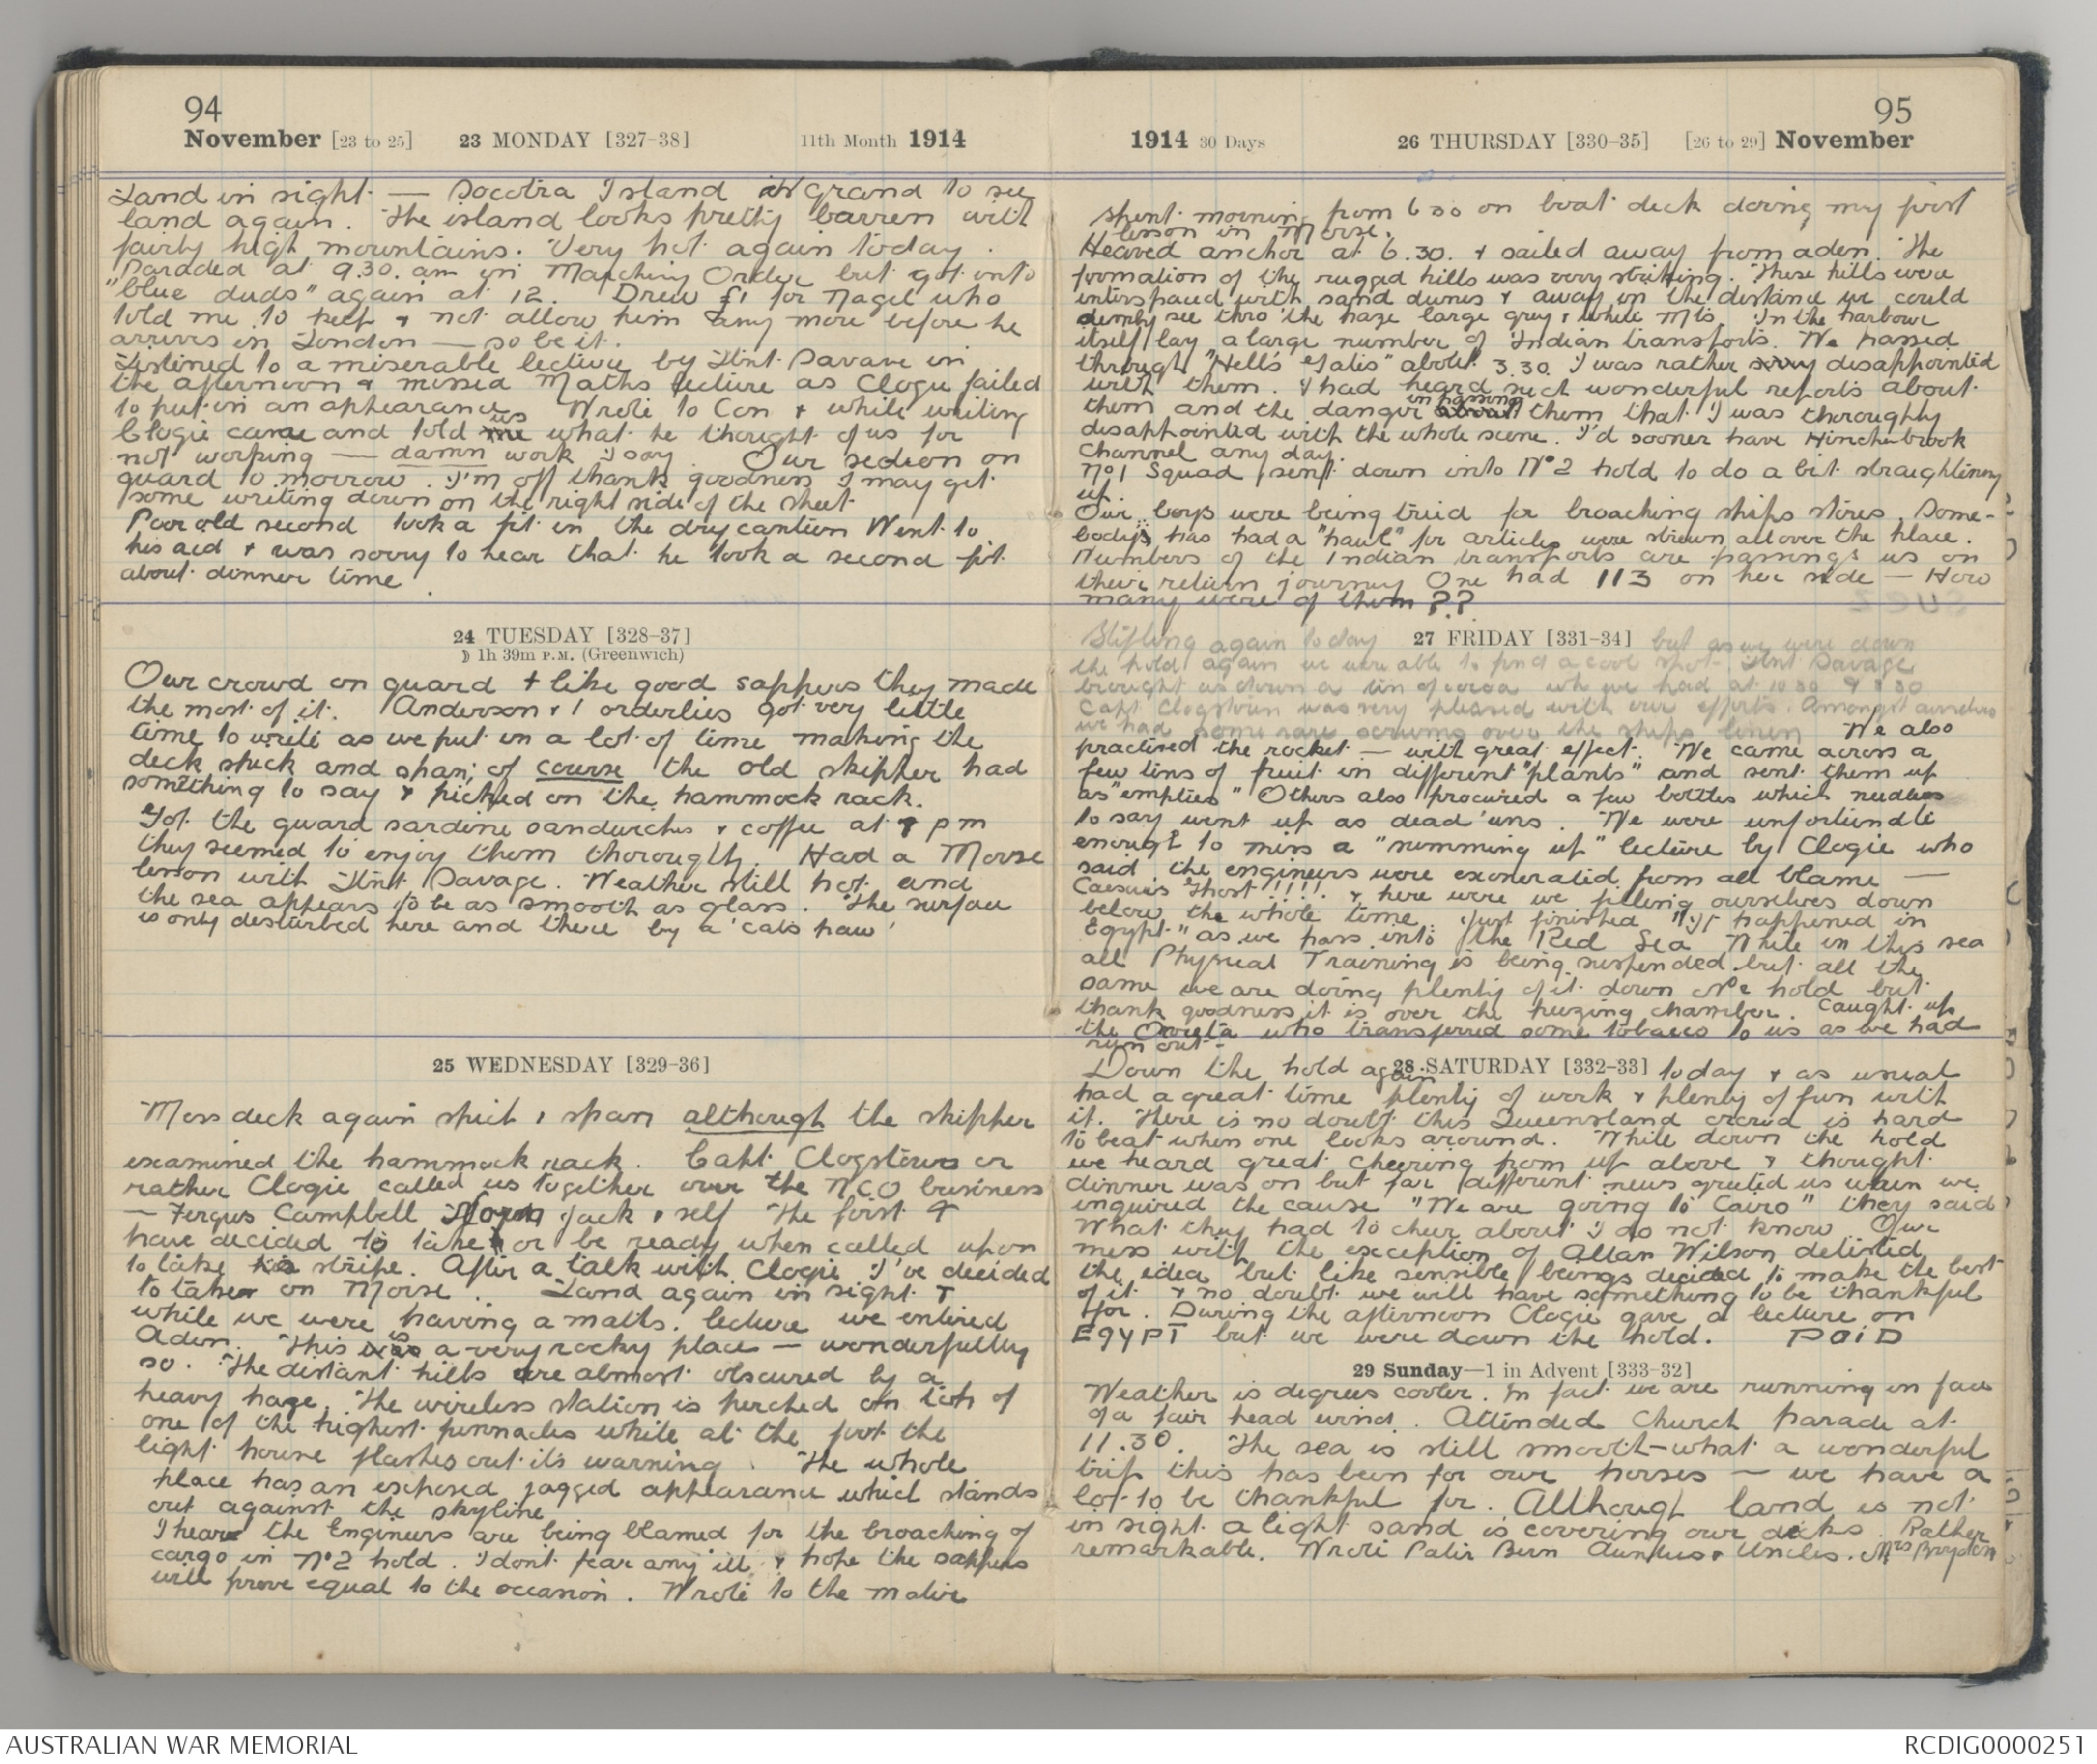 94
November [23 to 25] 23 MONDAY [327-38] 11th Month 1914
Land in sight — Socotra Island grand to see
land again. The island looks pretty barren with
fairly high mountains. Very hot again today.
Paraded at 9.30. am in Marching Order but got into
"blue duds" again at 12. Drew £1 for Nagel who
told me to keep & not allow him any more before he
arrives in London — so be it.
Listened to a miserable lecture by Ltnt Savage in
the afternoon & missed Maths lecture as Clogie failed
to put in an appearance. Wrote to Con & while writing
Clogie came and told me us what he thought of us for
not working — damn work I say. Our section on
guard to morrow. I'm off thank goodness I may get
some writing down on the right side of the sheet
Poor old second took a fit in the dry canteen Went to
his aid & was sorry to hear that he took a second fit
about dinner time.
24 TUESDAY [328-37]
☽ 1h 39m P.M. (Greenwich)
Our crowd on guard & like good sappers they made
the most of it. Anderson & I orderlies got very little
time to write as we put in a lot of time making the
deck spick and span; of course the old skipper had
something to say & picked on the hammock rack.
Got the guard sardine sandwiches & coffee at 9 pm
they seemed to enjoy them thoroughly. Had a Morse
lesson with Ltnt Savage. Weather still hot and
the sea appears to be as smooth as glass. The surface
is only disturbed here and there by a 'cats paw'
25 WEDNESDAY [329-36]
Mess deck again spick & span although the skipper
examined the hammock rack. Capt Clogstoun or
rather Clogie called us together over the NCO business
— Fergus Campbell Jack & self The first 4
have decided to take or be ready when called upon
to take stripe. After a talk with Clogie I've decided
to take on Morse. Land again in sight &
while we were having a maths. lecture we entered
Aden. This was is a very rocky place — wonderfully
so. The distant hills are almost obscured by a
heavy haze. The wireless station is perched on top of
one of the highest pinnacles while at the foot the
light house flashes out it's warning. The whole
place has an exposed jagged appearance which stands
out against the skyline
I hear the Engineers are being blamed for the broaching of
cargo in No 2 hold. I dont fear any ill & hope the sappers
will prove equal to the occasion. Wrote to the mater
95
1914 30 Days 26 THURSDAY [330-35] [26 to 29] November
Spent morning from 6 30 on boat deck doing my first
lesson in Morse.
Heaved anchor at 6.30. & sailed away from aden. The
formation of the rugged hills was very striking. These hills were
interspaced with sand dunes & away in the distance we could
dimly see thro' the haze large grey & white Mts. In the harbour
itself lay a large number of Indian transports. We passed
through "Hell's Gates" about 3.30. I was rather very disappointed
with them. I had heard such wonderful reports about
them and the danger about in passing them that I was thoroughly
disappointed with the whole scene. I'd sooner have Hinchinbrook
Channel any day.
No 1 Squad sent down into No 2 hold to do a bit straightening
up.
Our boys were being tried for broaching ships stores. Some-
body's has had a "haul" for articles were strewn all over the place.
Numbers of the Indian transports are passing us on
their return journey One had 113 on her side — How
many were of them ??
27 FRIDAY [331-34]
Stifling again today but as we were down
the hold again we were able to find a cool spot. Ltnt Savage
brought us down a tin of cocoa wh we had at 10 30 & 3 30
Capt Clogstoun was very pleased with our efforts. Amongst ourselves
we had some rare over the ships linen We also
practised the rocket — with great effect. We came across a
few tins of fruit in different "plants" and sent them up
as "empties" Others also procured a few bottles which needless
to say went up as dead 'uns. We were unfortunate
enough to miss a "summing up" lecture by Clogie who
said the engineers were exonerated from all blame —
Caesar's Ghost!!!! & here were we filling ourselves down
below the whole time. Just finished "It happened in
Egypt" as we pass into the Red Sea While in this sea
all Physical Training is being suspended but all the
same we are doing plenty of it down the hold but
thank goodness it is over the freezing chamber. Caught up
the Orvieto who transferred some tobacco to us as we had
run out.
28 SATURDAY [332-33]
Down the hold again today & as usual
had a great time plenty of work & plenty of fun with
it. There is no doubt this Queensland crowd is hard
to beat when one looks around. While down the hold
we heard great cheering from up above & thought
dinner was on but far different news greeted us when we
inquired the cause "We are going to Cairo" they said
What they had to cheer about I do not know Our
mess with the exception of Allan Wilson detested
the idea but like sensible beings decided to make the best
of it & no doubt we will have something to be thankful
for. During the afternoon Clogie gave a lecture on
EGYPT but we were down the hold. PAID
29 Sunday—1 in Advent [333-32]
Weather is degrees cooler. In fact we are running in face
of a fair head wind. Attended Church Parade at
11.30. The sea is still smooth—what a wonderful
trip this has been for our horses — we have a
lot to be thankful for. Although land is not
in sight a light sand is covering our decks. Rather
remarkable. Wrote Pater Bern Aunties & Uncles. Mrs Brydon
AUSTRALIAN WAR MEMORIAL
RCDIG0000251